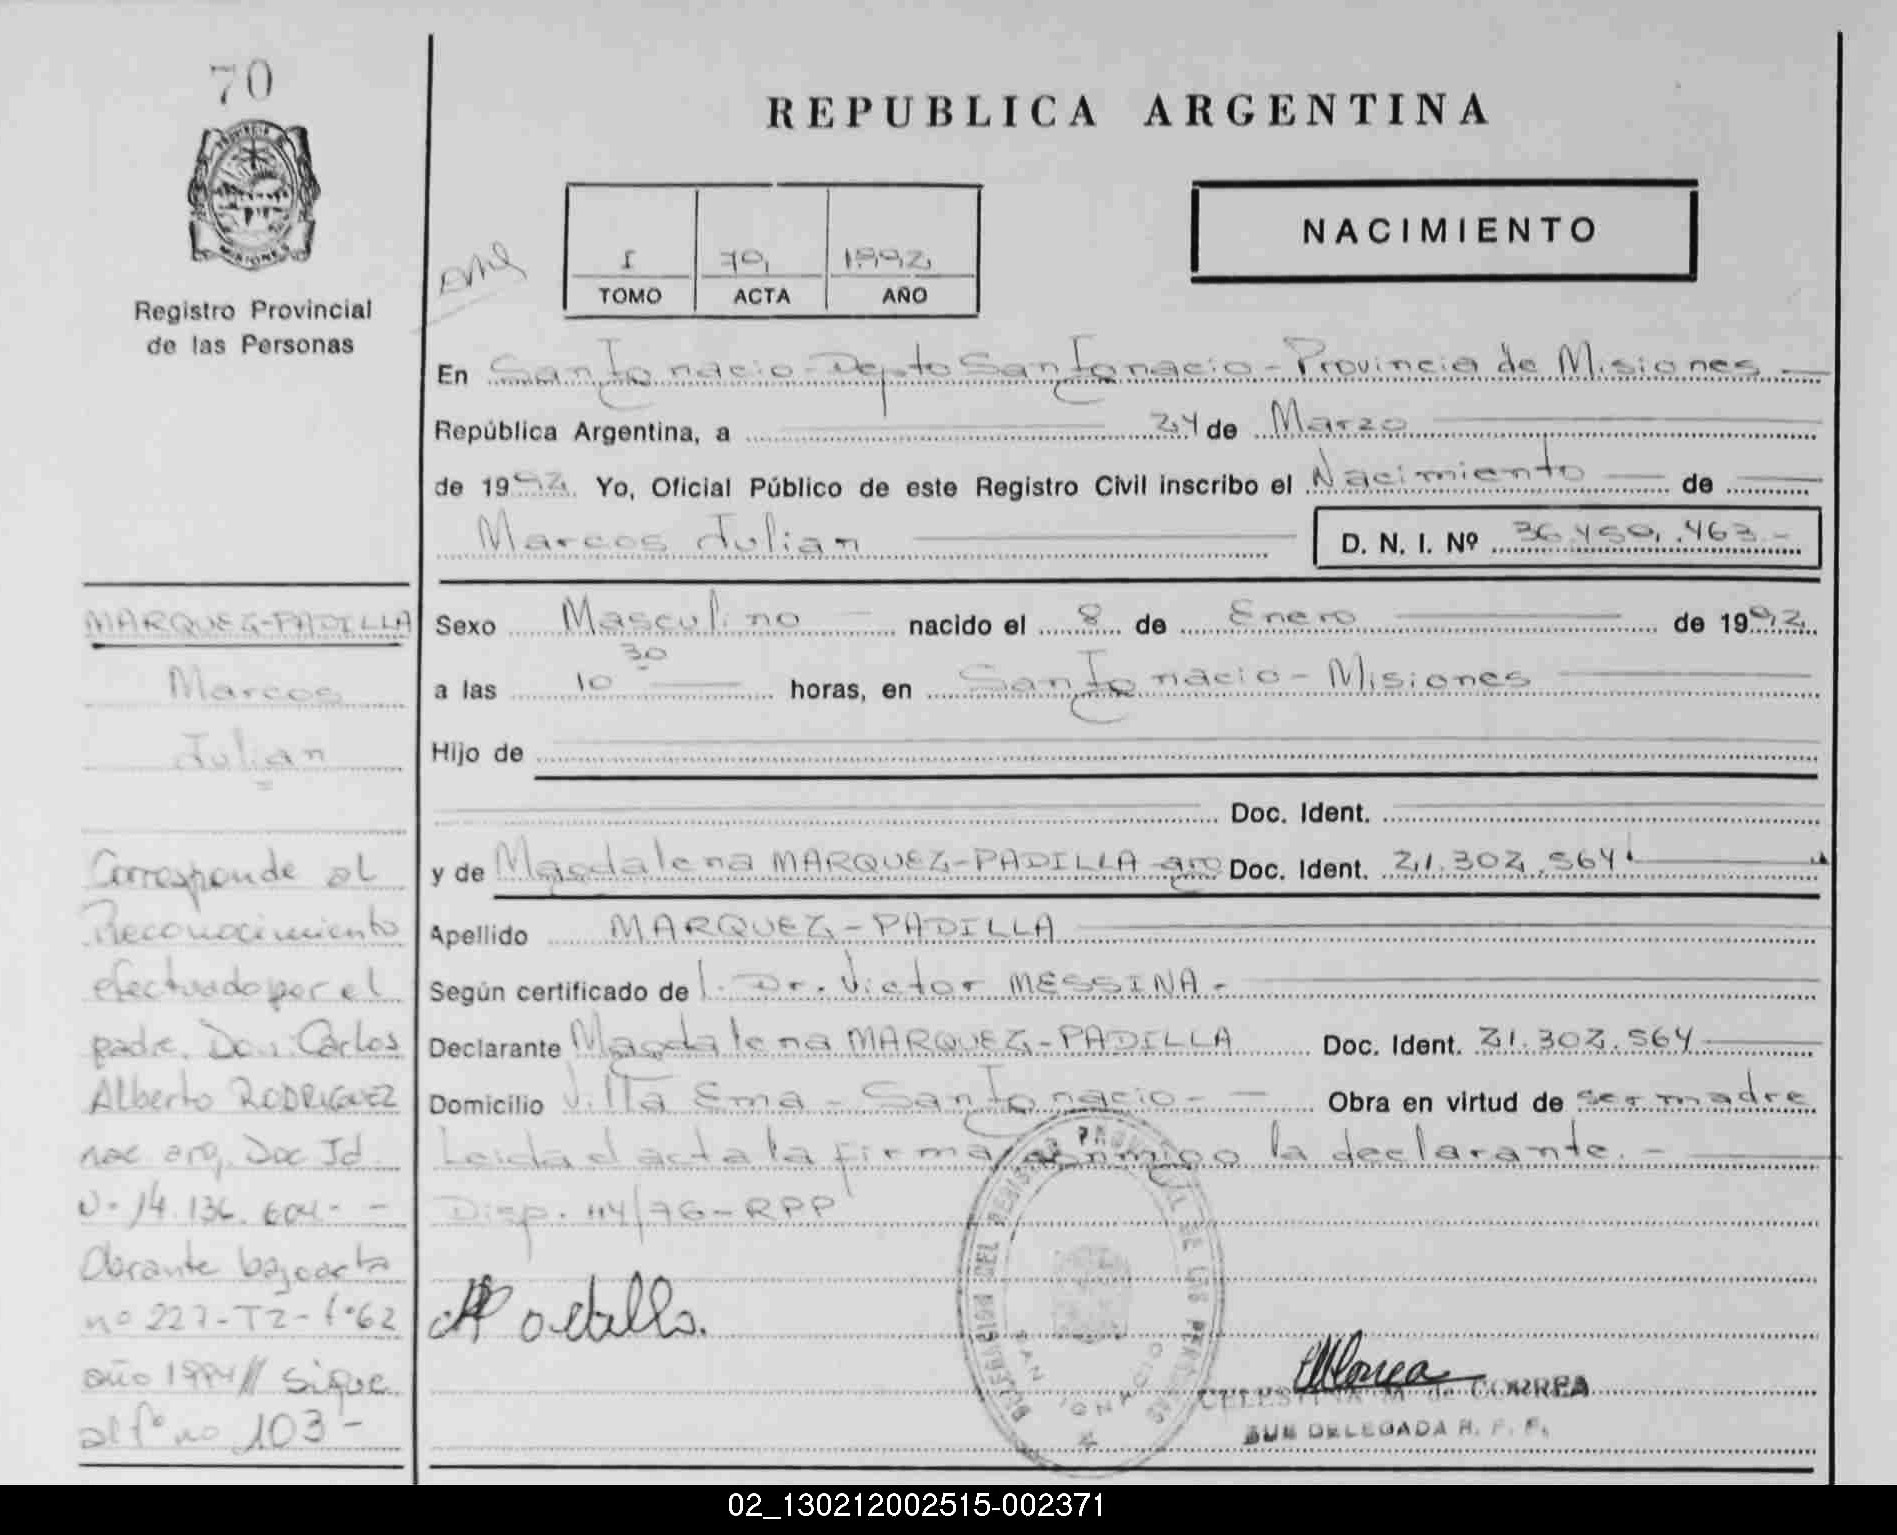 70
Registro Provincial
de las Personas
REPUBLICA ARGENTINA
NACIMIENTO
I 70 1992
TOMO ACTA AÑO
En San Ignacio - Depto San Ignacio - Provincia de Misiones
República Argentina, a 24 de Marzo
de 1992. Yo, Oficial Público de este Registro Civil inscribo el Nacimiento de
Marcos Julian D. N. I. Nº 36.450.463.-
Sexo Masculino nacido el 8 de Enero de 1992
a las 10 30 horas, en San Ignacio - Misiones
Hijo de
Doc. Ident.
y de Magdalena MARQUEZ-PADILLA arg Doc. Ident. 21.302.564
Apellido MARQUEZ-PADILLA
Según certificado del Dr. Victor MESSINA -
Declarante Magdalena MARQUEZ-PADILLA Doc. Ident. 21.302.564
Domicilio Villa Ema - San Ignacio - Obra en virtud de ser madre
Leida el acta la firma conmigo la declarante. -
Disp. 114/76-RPP
MARQUEZ-PADILLA
Marcos
Julian
Corresponde al
Reconocimiento
efectuado por el
padre. Don. Carlos
Alberto RODRIGUEZ
nac arg. Doc Id.
N- 14.136.604 - -
Obrante bajo acta
nº 227-T2-fº62
año 1994// sigue
al fº no 103 -
DELEGACION DEL REGISTRO PROVINCIAL DE LAS PERSONAS
SAN IGNACIO
CELESTINA M de CORREA
SUB DELEGADA R. P. P.
02_130212002515-002371